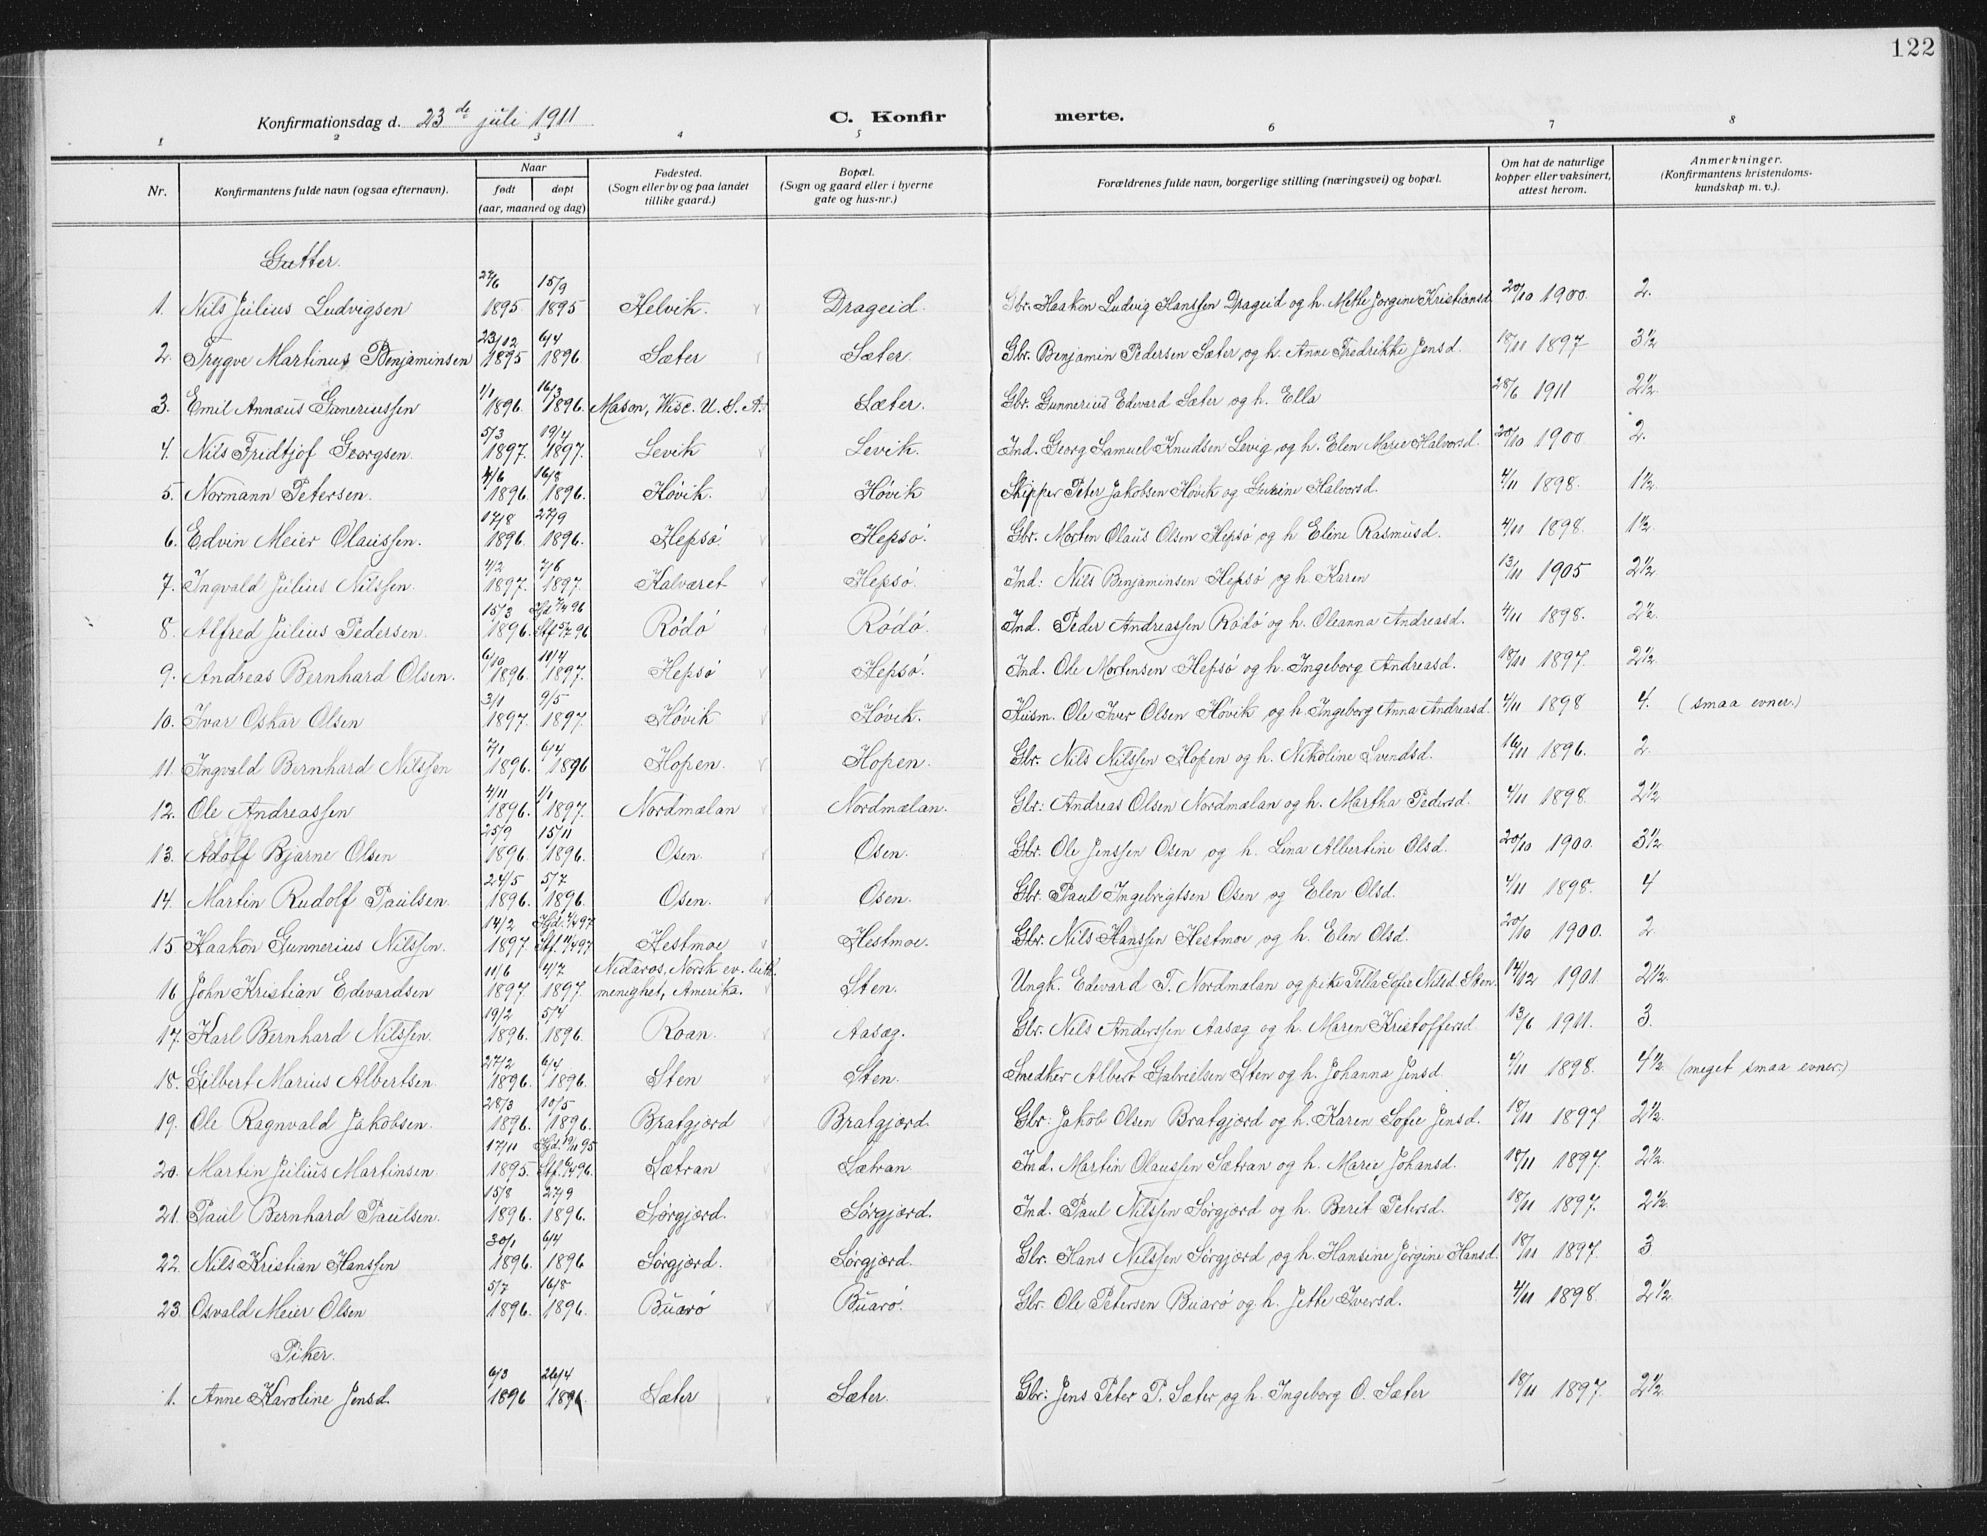 122
Konfirmationsdag d. 23de juli 1911 C. Konfirmerte.
1 2 3 4 5 6 7 8
Nr. Konfirmantens fulde navn (ogsaa efternavn). Naar født døpt (aar, maaned og dag) Fødested. (Sogn eller by og paa landet tillike gaard.) Bopæl. (Sogn og gaard eller i byerne gate og hus-nr.) Forældrenes fulde navn, borgerlige stilling (næringsvei) og bopæl. Om hat de naturlige kopper eller vaksinert, attest herom. Anmerkninger. (Konfirmantens kristendomskundskap m. v.).
Gutter.
1. Nils Julius Ludvigsen 27/6 1895 15/9 1895 Helvik. Drageid. Gbr. Haakon Ludvig Hanssen Drageid og h. Mette Jorgine Kristiansd. 20/10 1900. 2.
2. Trygve Martinus Benjaminsen 23/12 1895 6/4 1896 Sæter Sæter. Gbr. Benjamin Pedersen Sæter og h. Anne Fredrikke Jensd. 18/11 1897 3 1/2
3. Emil Annæus Gunneriussen 1/1 1896. 16/3 1896. Mason, Wisc. U. S. A. Sæter. Gbr. Gunnerius Edvard Sæter og h. Ella 28/6 1911 2 1/2
4. Nils Fridtjof Georgsen 5/3 1897. 19/4 1897. Levik Levik. Ind. Georg Samuel Knudsen Levig og h. Elen Marie Halvorsd. 20/10 1900 2.
5. Normann Petersen. 4/6 1896. 16/8 1896. Høvik. Høvik Skipper Peter Jakobsen Høvik og Gurine Halvorsd. 4/11 1898. 1 1/2
6. Edvin Meier Olaussen. 17/8 1896. 27/9 1896. Hepsø. Hepsø. Gbr. Morten Olaus Olsen Hepsø og h Eline Rasmusd. 4/11 1898. 1 1/2
7. Ingvald Julius Nilssen. 4/2 1897. 7/6 1897. Kalværet Hepsø. Ind: Nils Benjaminsen Hepsø og h. Karen 13/11 1905 2 1/2
8. Alfred Julius Pedersen. 15/3 1896. Hjd 7/4 96 Stf 5/7 96 Rødø Rødø. Ind. Peder Andreassen Rødø og h. Oleanna Andreasd. 4/11 1898. 2 1/2
9. Andreas Bernhard Olsen. 6/10 1896. 11/4 1897. Hepsø Hepsø. Ind. Ole Mortensen Hepsø og h. Ingeborg Andreasd. 18/11 1897. 2 1/2
10. Ivar Oskar Olsen 3/1 1897. 9/5 1897. Høvik Høvik. Husm. Ole Iver Olsen Høvik og h. Ingeborg Anna Andreasd. 4/11 1898 4. (smaa evner.)
11. Ingvald Bernhard Nilssen 7/1 1896. 6/4 1896 Hopen. Hopen. Gbr. Nils Nilssen Hopen og h. Nikoline Svendsd. 16/11 1896. 2.
12. Ole Andreassen 4/11 1896. 1/1 1897. Nordmælan Nordmælan. Gbr: Andreas Olsen Nordmælan og h. Martha Pedersd. 4/11 1898. 2 1/2
13. Adolf Bjarne Olsen 25/9 1896. 15/11 1896. Osen. Osen. Gbr. Ole Jenssen Osen og h. Lina Albertine Olsd. 20/10 1900. 3 1/2
14. Martin Rudolf Paulsen. 24/5 1896. 5/7 1896. Osen. Osen. Gbr. Paul Ingebrigtsen Osen og Elen Olsd. 4/11 1898. 4
15 Haakon Gunnerius Nilssen. 14/2 1897 Hestmoe Hestmoe. Gbr. Nils Hanssen Hestmoe og h. Elen Olsd. 20/10 1900. 2.
16 John Kristian Edevardsen 11/6 1897. 4/7 1897. Nidaros, Norsk ev. luth. menighet, Amerika. Sten. Ungk. Edevard T. Nordmælan og pike Tella Sofie Nilsd. Sten. 14/12 1901. 2 1/2
17. Karl Bernhard Nilssen. 19/2 1896. 5/4 1896. Roan. Aasæg. Gbr. Nils Anderssen Aasæg og h. Maren Kristoffersd 13/6 1911. 3.
18. Gilbert Marius Albertsen. 27/2 1896. 6/4 1896. Sten Sten. Snedker Albert Gabrielsen Sten og h. Johanna Jensd. 4/11 1898. 4 1/2 (meget smaa evner.)
19. Ole Ragnvald Jakobsen. 28/3 1896. 10/5 1896. Bratgjærd Bratgjærd. Gbr: Jakob Olsen Bratgjærd og h. Karen Sofie Jensd. 18/11 1897 2 1/2
20. Martin Julius Martinsen 17/11 1895. Sætran Sætran Ind. Martin Olaussen Sætran og h. Marie Johansd. 18/11 1897. 2 1/2
21. Paul Bernhard Paulsen. 15/8 1896. 27/9 1896. Sørgjærd. Sørgjærd. Ind. Paul Nilssen Sørgjærd og h. Berit Petersd. 18/11 1897. 2 1/2
22. Nils Kristian Hanssen 30/1 1896. 6/4 1896 Sørgjærd. Sørgjærd. Gbr. Hans Nilssen Sørgjærd og h. Hansine Jørgine Hansd. 18/11 1897. 3
23. Osvald Meier Olsen 5/7 1896. 16/8 1896. Buarø Buarø. Gbr. Ole Petersen Buarø og h. Jette Iversd. 4/11 1898. 2 1/2
Piker.
1. Anne Karoline Jensd. 6/3 1896 26/4 1896. Sæter Sæter. Gbr: Jens Peter P. Sæter og h. Ingeborg O. Sæter 18/11 1897. 2 1/2